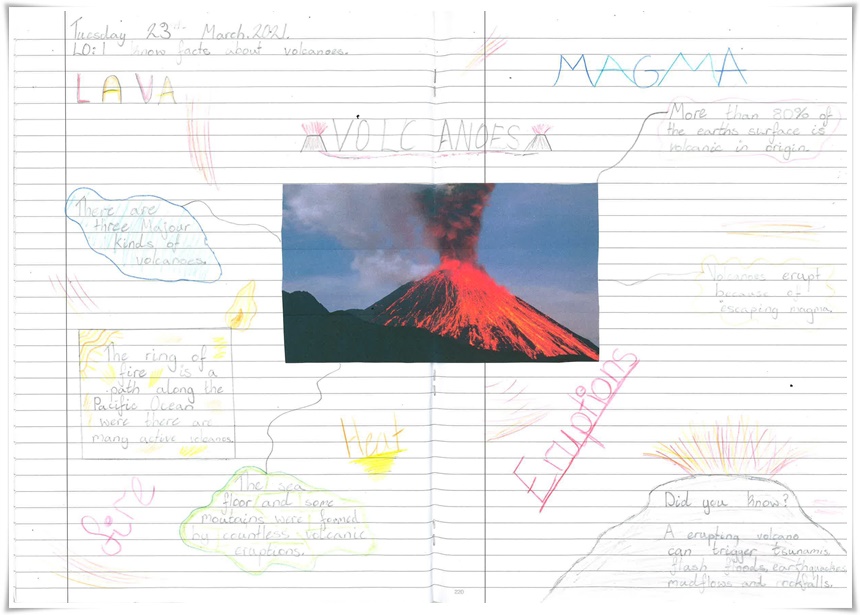 Tuesday 23rd March.2021.
LO: I know facts about volcanoes.
LAVA
MAGMA
VOLCANOES
More than 80% of
the earths surface is
volcanic in origin.
There are
three Majour
kinds of
volcanoes.
Volcanoes erupt
because of
escaping magma.
The ring of
fire is a
path along the
Pacific Ocean
were there are
many active volcanoes.
Heat
Eruptions
Fire
The sea
floor and some
moutains were formed
by countless volcanic
eruptions.
Did you know?
A erupting volcano
can trigger tsunamis
flash floods, earthquakes
mudflows and rockfalls.